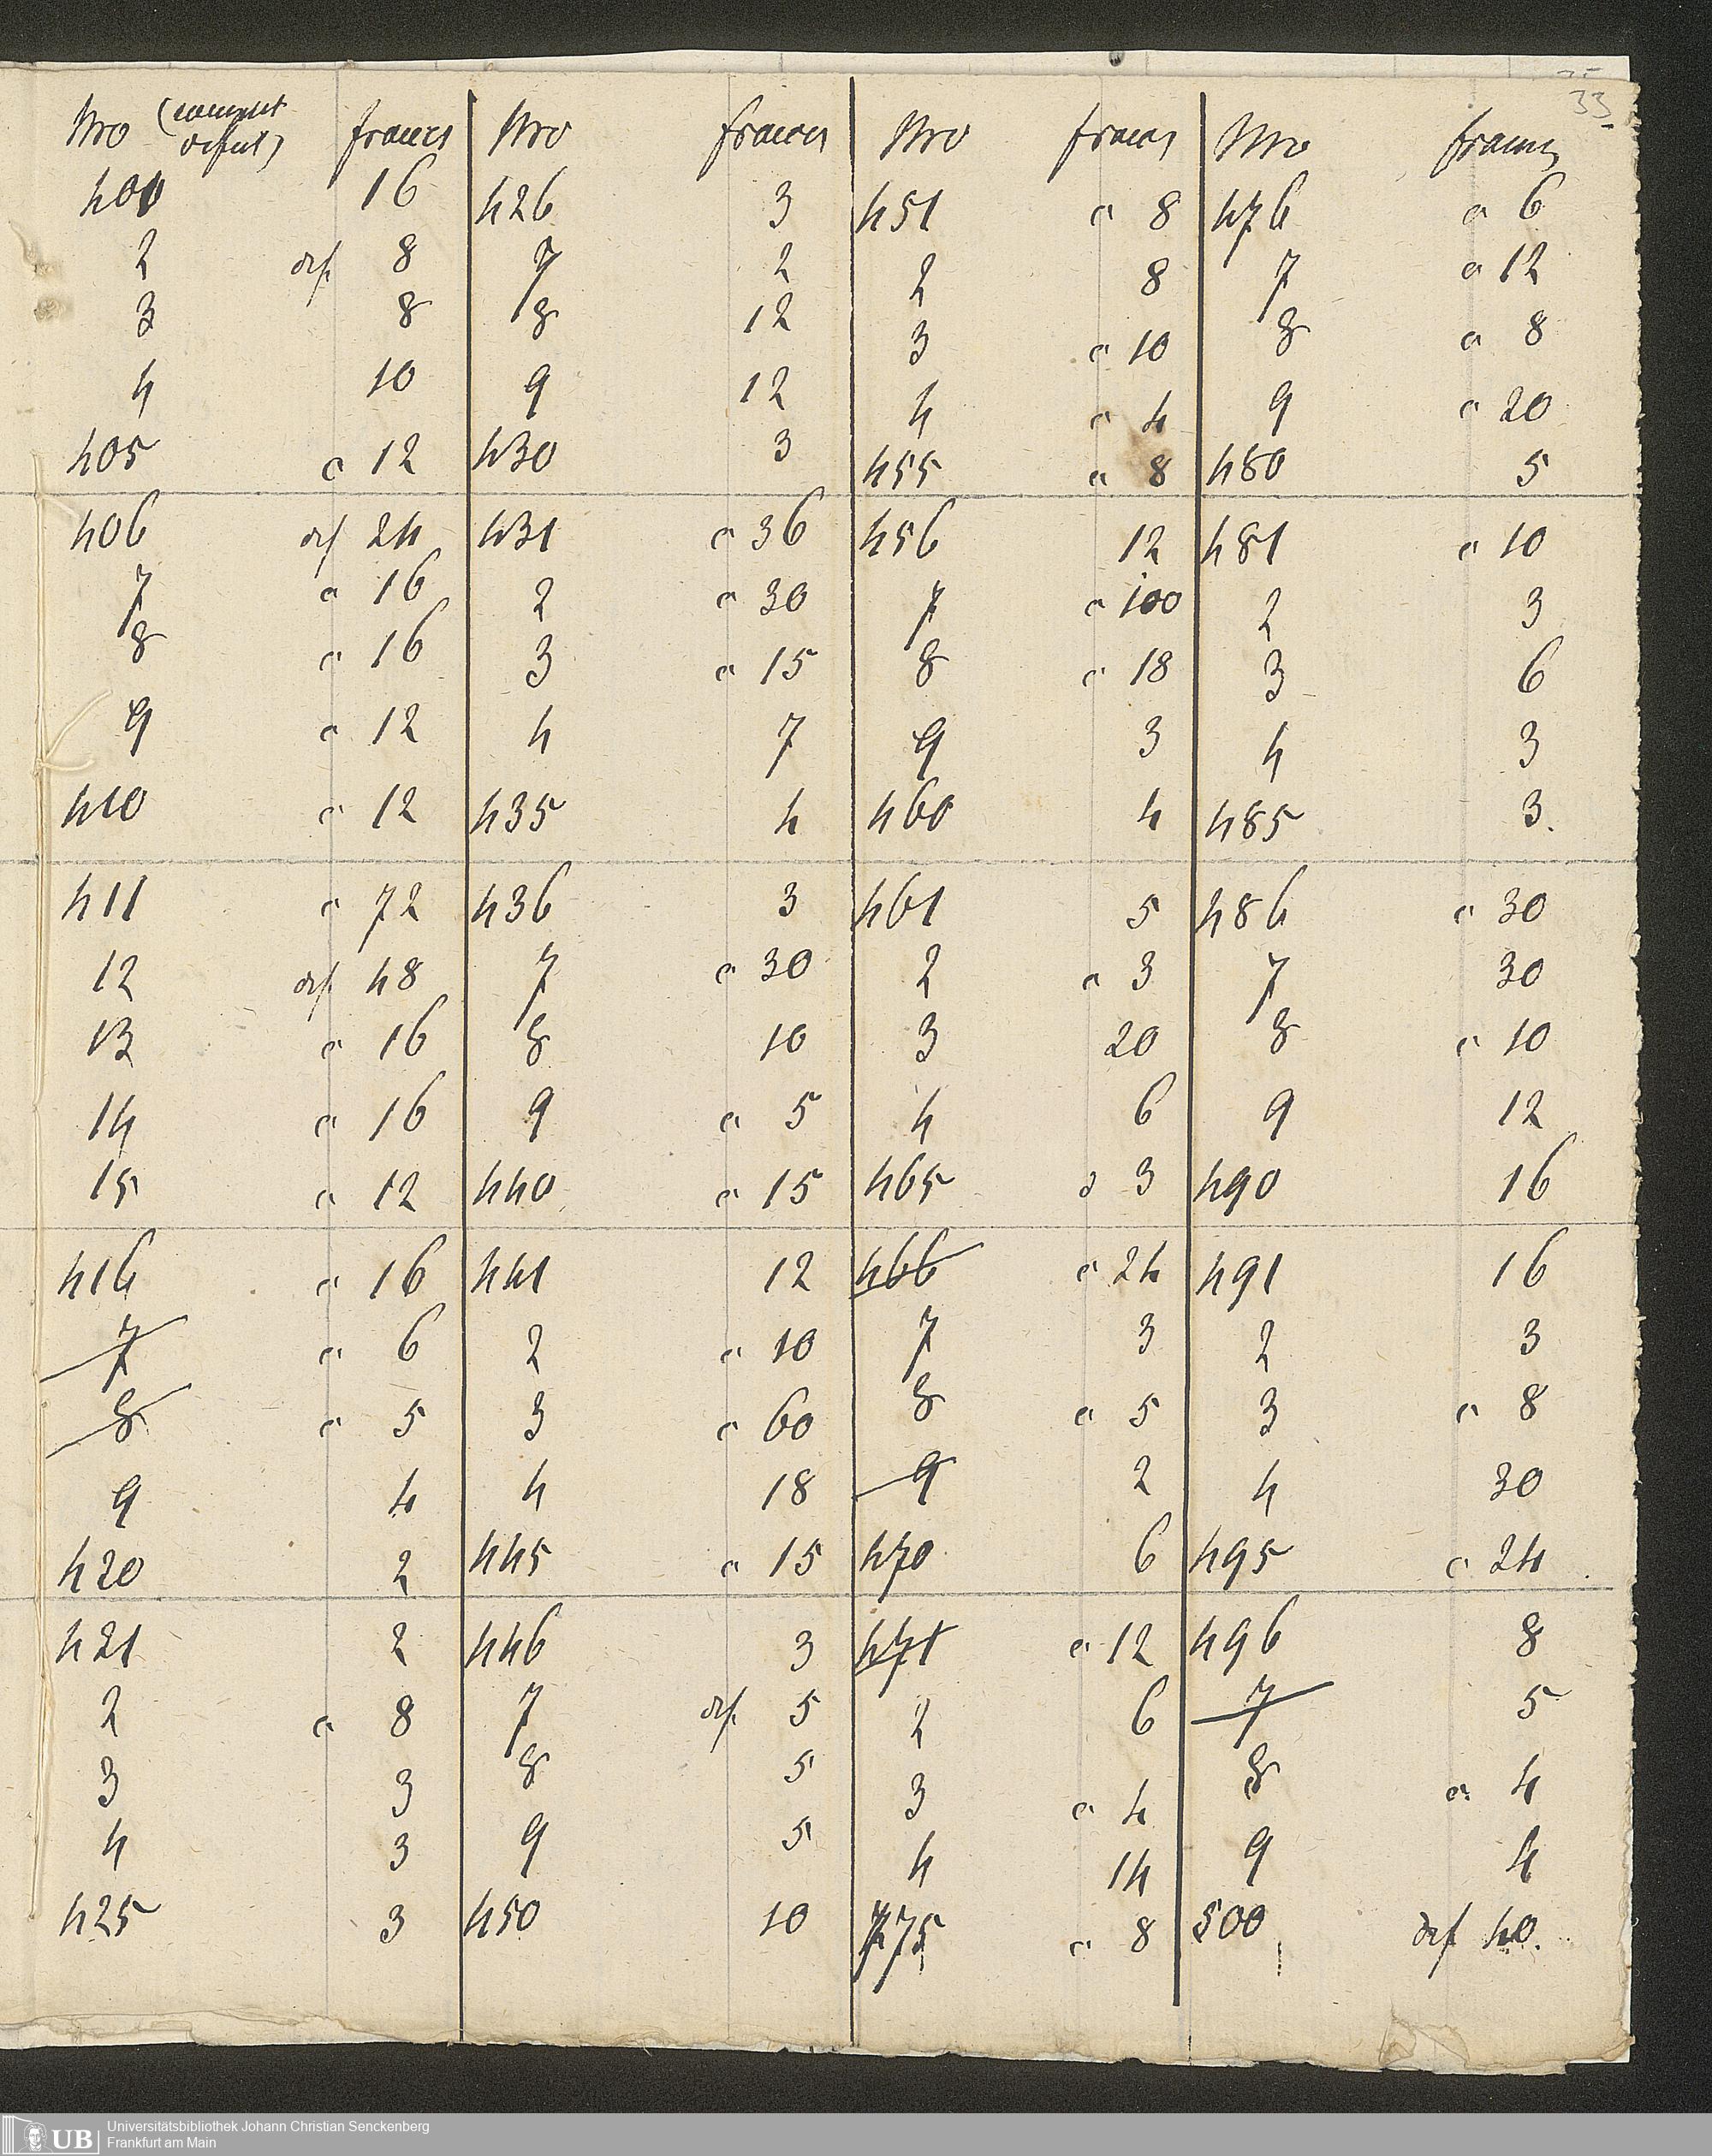 33
Nro (complet defect) francs Nro francs Nro francs Nro francs
401 16 426 3 451 c 8 476 c 6
2 def. 8 7 2 2 8 7 c 12
3 8 8 12 3 c 10 8 c 8
4 10 9 12 4 c 4 9 c 20
405 c 12 430 3 455 c 8 480 5
406 def 24 431 c 36 456 12 481 c 10
7 c 16 2 c 30 7 c 100 2 3
8 c 16 3 c 15 8 c 18 3 6
9 c 12 4 7 9 3 4 3
410 c 12 435 4 460 4 485 3.
411 c 72 436 3 461 5 486 c 30
12 def. 48 7 c 30 2 c 3 7 30
13 c 16 8 10 3 20 8 c 10
14 c 16 9 c 5 4 6 9 12
15 c 12 440 c 15 465 3 490 16
416 c 16 441 12 466 c 24 491 16
7 c 6 2 c 10 7 3 2 3
8 c 5 3 c 60 8 c 5 3 c 8
9 4 4 18 9 2 4 30
420 2 445 c 15 470 6 495 c 24
421 2 446 3 471 c 12 496 8
2 c 8 7 def. 5 2 6 7 5
3 3 8 5 3 c 4 8 c. 4
4 3 9 5 4 14 9 4
425 3 450 10 475 c 8 500 def 40.
UB Universitätsbibliothek Johann Christian Senckenberg
Frankfurt am Main